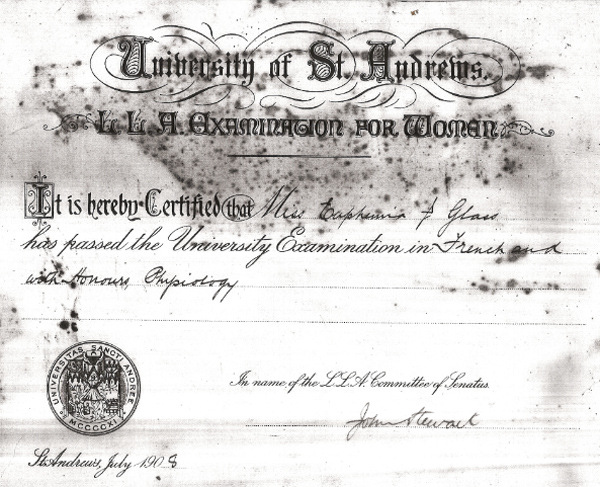 University of St. Andrews.
L L A Examination for Women
It is hereby Certified that Miss Euphemia J Glass
has passed the University Examination in French and
with Honours, Physiology
UNIVERSITAS SANCTI ANDREE MCCCCXI
In name of the L.L.A. Committee of Senatus.
John Stewart
St. Andrews, July 1908